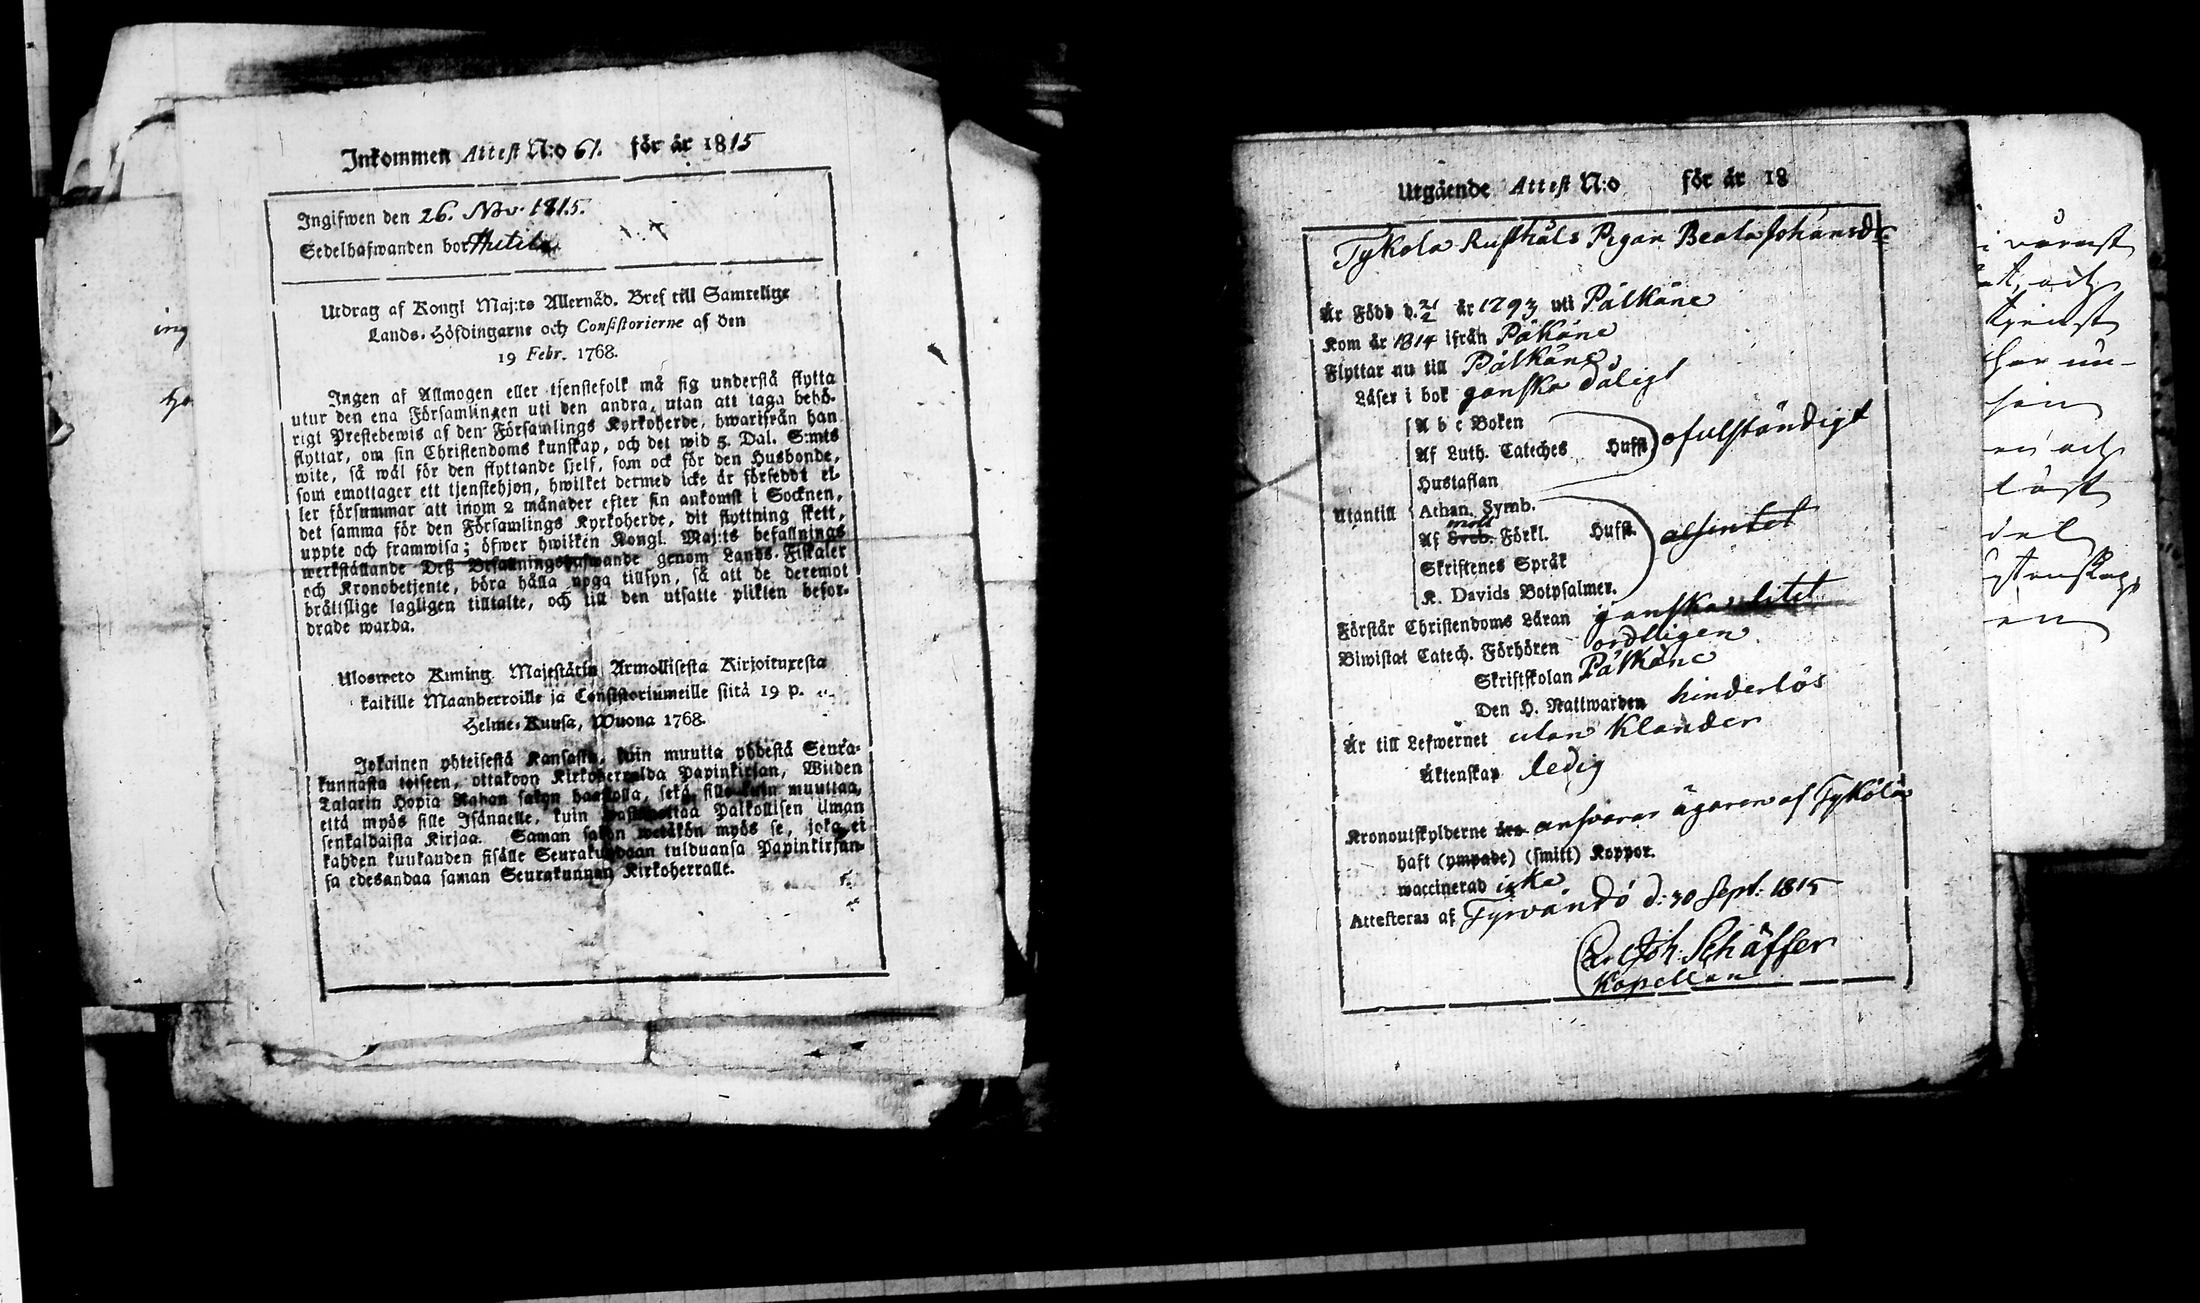 Inkommen Attest N:o 61. för år 1815
Ingifwen den 26. Nov. 1815.
Sedelhafwanden bor Hutila
Utdrag af Kongl Maj:ts Allernåd. Bref till Samtelige
Lands-Höfdingarne och Consistorierne af den
19 Febr. 1768.
Ingen af Allmogen eller tjenstefolk må sig understå flytta
utur den ena Församlingen uti den andra, utan att taga behö-
rigt Prestebewis af den Församlings Kyrkoherde, hwarifrån han
flyttar, om sin Christendoms kunskap, och det wid 5. Dal. S:mts
wite, så wäl för den flyttande sjelf, som ock för den Husbonde,
som emottager ett tjenstehjon, hwilket dermed icke är försedt el-
ler försummar att inom 2 månader efter sin ankomst i Socknen,
det samma för den Församlings Kyrkoherde, dit flyttning skett,
uppte och framwisa; öfwer hwilken Kongl. Maj:ts befallnings
werkställande Deß Befallningshafwande genom Lands-Fiskaler
och Kronobetjente, böra hålla noga tillsyn, så att de deremot
bråttslige lagligen tilltalte, och till den utsatte plikten befor-
drade warda.
Ulosweto Kuning. Majestätin Armollisesta Kirjoituxesta
kaikille Maanherroille ja Consistoriumeille siitä 19 p.
Helme-Kuusa, Wuona 1768.
Jokainen yhteisestä Kansasta, kuin muutta yhdestä Seura-
kunnasta toiseen, ottakoon Kirkoherralda Papinkirjan, Wiiden
Talarin Hopia Rahan sakon haastolla, sekä sille kuin muuttaa,
että myös sille Isännelle, kuin wastanottaa Palkollisen ilman
senkaldaista Kirjaa. Saman sakon wetäkön myös se, joka ei
kahden kuukauden sisälle Seurakundaan tulduansa Papinkirjan-
sa edesandaa saman Seurakunnan Kirkoherralle.
Utgående Attest N:o för år 18
Tykola Rusthåls Pigan Beata Johansdr
Är Född d. 21/2 år 1793 uti Pälkäne
Kom år 1814 ifrån Päkäne
Flyttar nu till Pälkäne
Läser i bok ganska dåligt
A b c Boken
Af Luth. Cateches Hufst. ofulständigt
Hustaflan
Utantill Athan. Symb.
Af Sveb. Förkl. Hufst. alsintet
Skriftenes Språk
K. Davids Botpsalmer.
Förstår Christendoms Läran ganska litet
Biwistat Catech. Förhören ordtligen
Skriftskolan Pälkäne
Den H. Nattwarden hinderlös
Är till Lefwernet utan Klander
Äktenskap ledig
Kronoutskylderne äro ansvarar ägaren af Tykölä
haft (ympade) (smitt) Koppor.
waccinerad icke
Attesteras af Tyrvändö d: 30 Sept: 1815
Joh: Schäffer
Kapellan